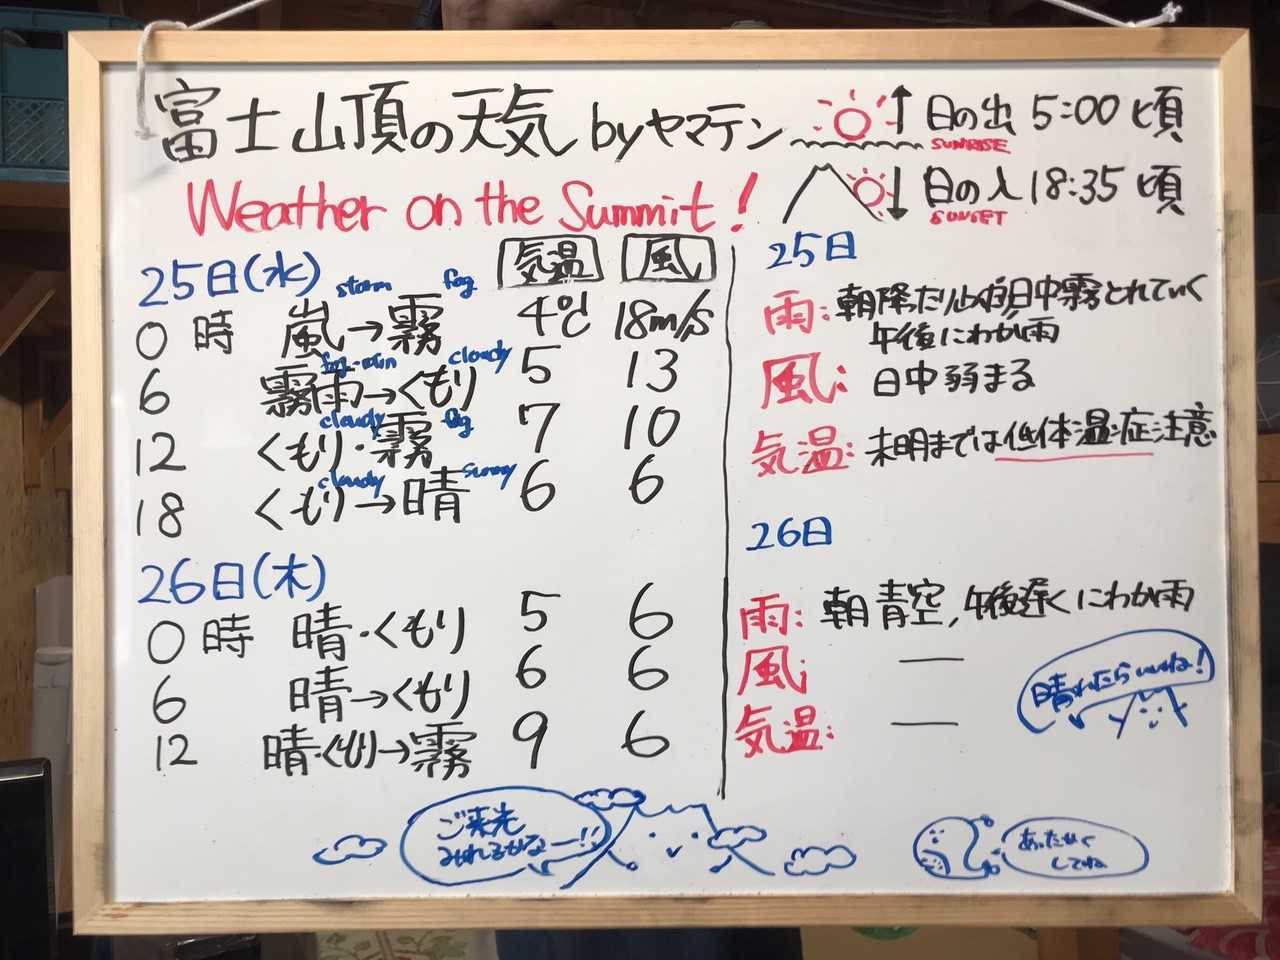 富士山頂の天気 byヤマテン
Weather on the Summit!
日の出 5:00 頃
SUNRISE
日の入 18:35 頃
SUNSET
気温 風
25日(水)
storm fog
0時 嵐→霧 4℃ 18m/s
fog・rain cloudy
6 霧雨→くもり 5 13
cloudy fog
12 くもり・霧 7 10
cloudy sunny
18 くもり→晴 6 6
26日(木)
0時 晴・くもり 5 6
6 晴→くもり 6 6
12 晴・くもり→霧 9 6
25日
雨: 朝降ったり止んだり日中霧とれていく
午後にわか雨
風: 日中弱まる
気温: 未明までは低体温症注意
26日
雨: 朝青空,午後遅くにわか雨
風: —
気温: —
晴れたらいいね!
ご来光
みれるかなー!!
あったかく
してね